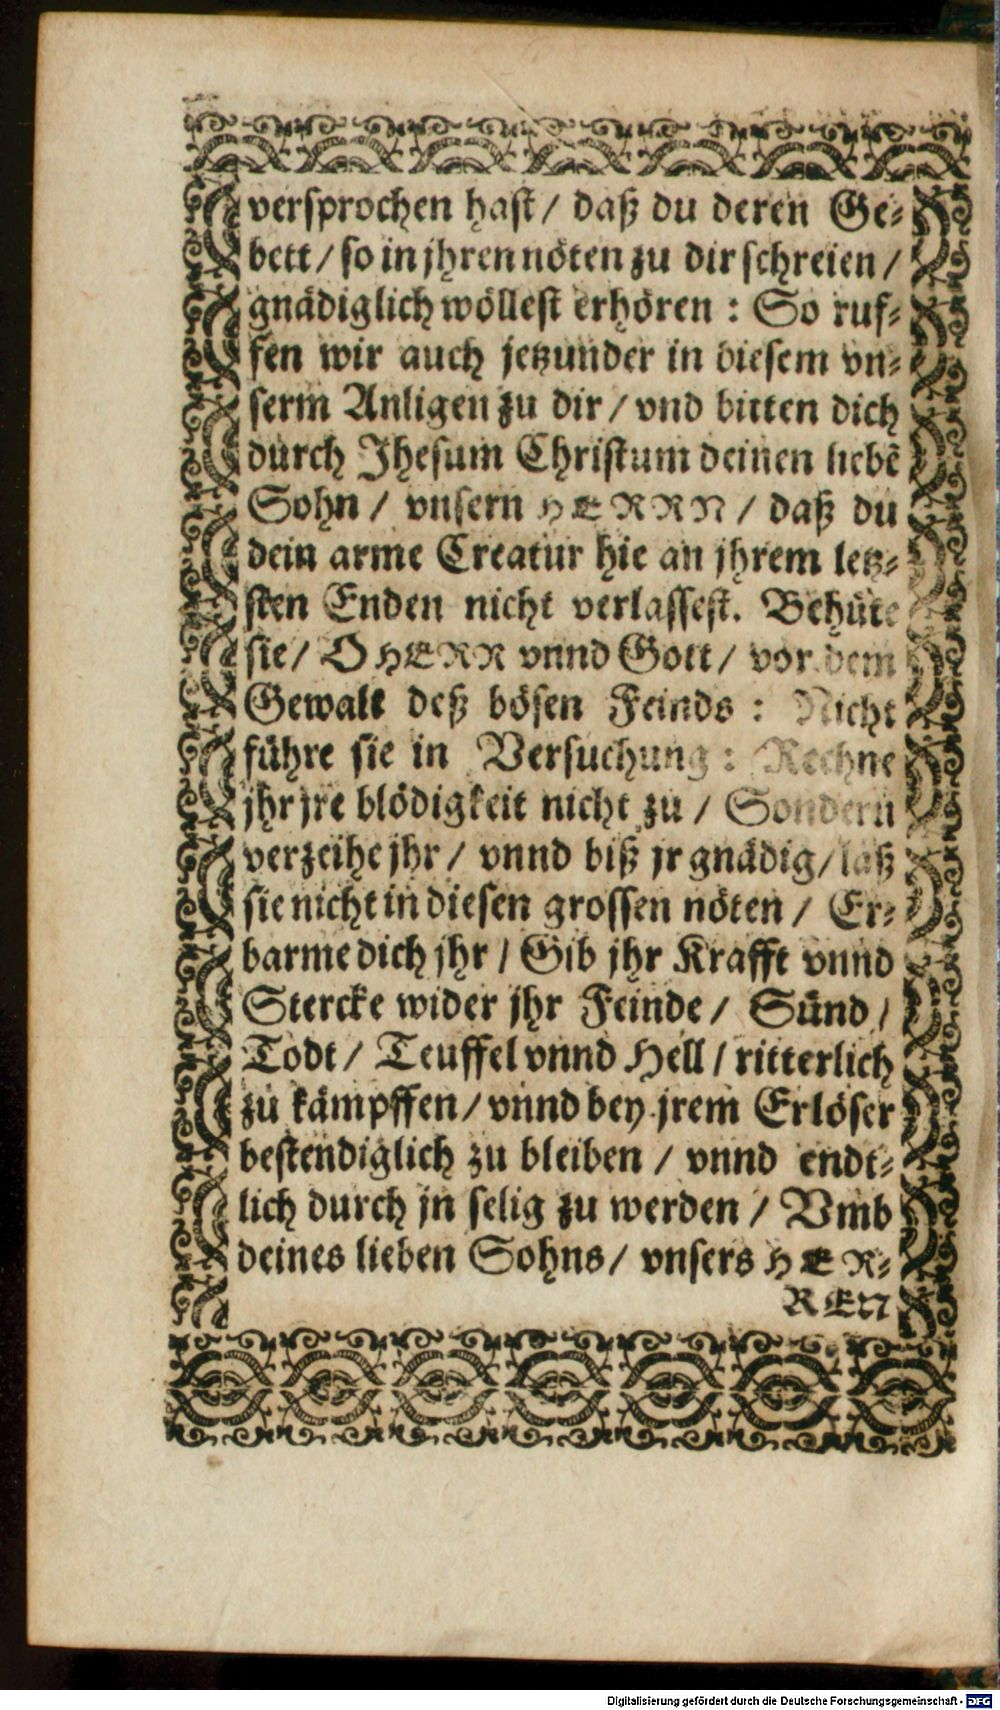 versprochen hast / daß du deren Ge-
bett / so in jhren nöten zu dir schreien /
gnädiglich wöllest erhören : So ruf-
fen wir auch jetzunder in diesem vn-
serm Anligen zu dir / vnd bitten dich
durch Jhesum Christum deinen liebẽ
Sohn / vnsern HERRN / daß du
dein arme Creatur hie an jhrem letz-
sten Enden nicht verlassest. Behüte
sie / O HERR vnnd Gott / vor dem
Gewalt deß bösen Feinds : Nicht
führe sie in Versuchung : Rechne
jhr jre blödigkeit nicht zu / Sondern
verzeihe jhr / vnnd biß jr gnädig / laß
sie nicht in diesen grossen nöten / Er-
barme dich jhr / Gib jhr Krafft vnnd
Stercke wider jhr Feinde / Sünd /
Todt / Teuffel vnnd Hell / ritterlich
zu kämpffen / vnnd bey jrem Erlöser
bestendiglich zu bleiben / vnnd endt-
lich durch jn selig zu werden / Vmb
deines lieben Sohns / vnsers HER-
REN
Digitalisierung gefördert durch die Deutsche Forschungsgemeinschaft - DFG